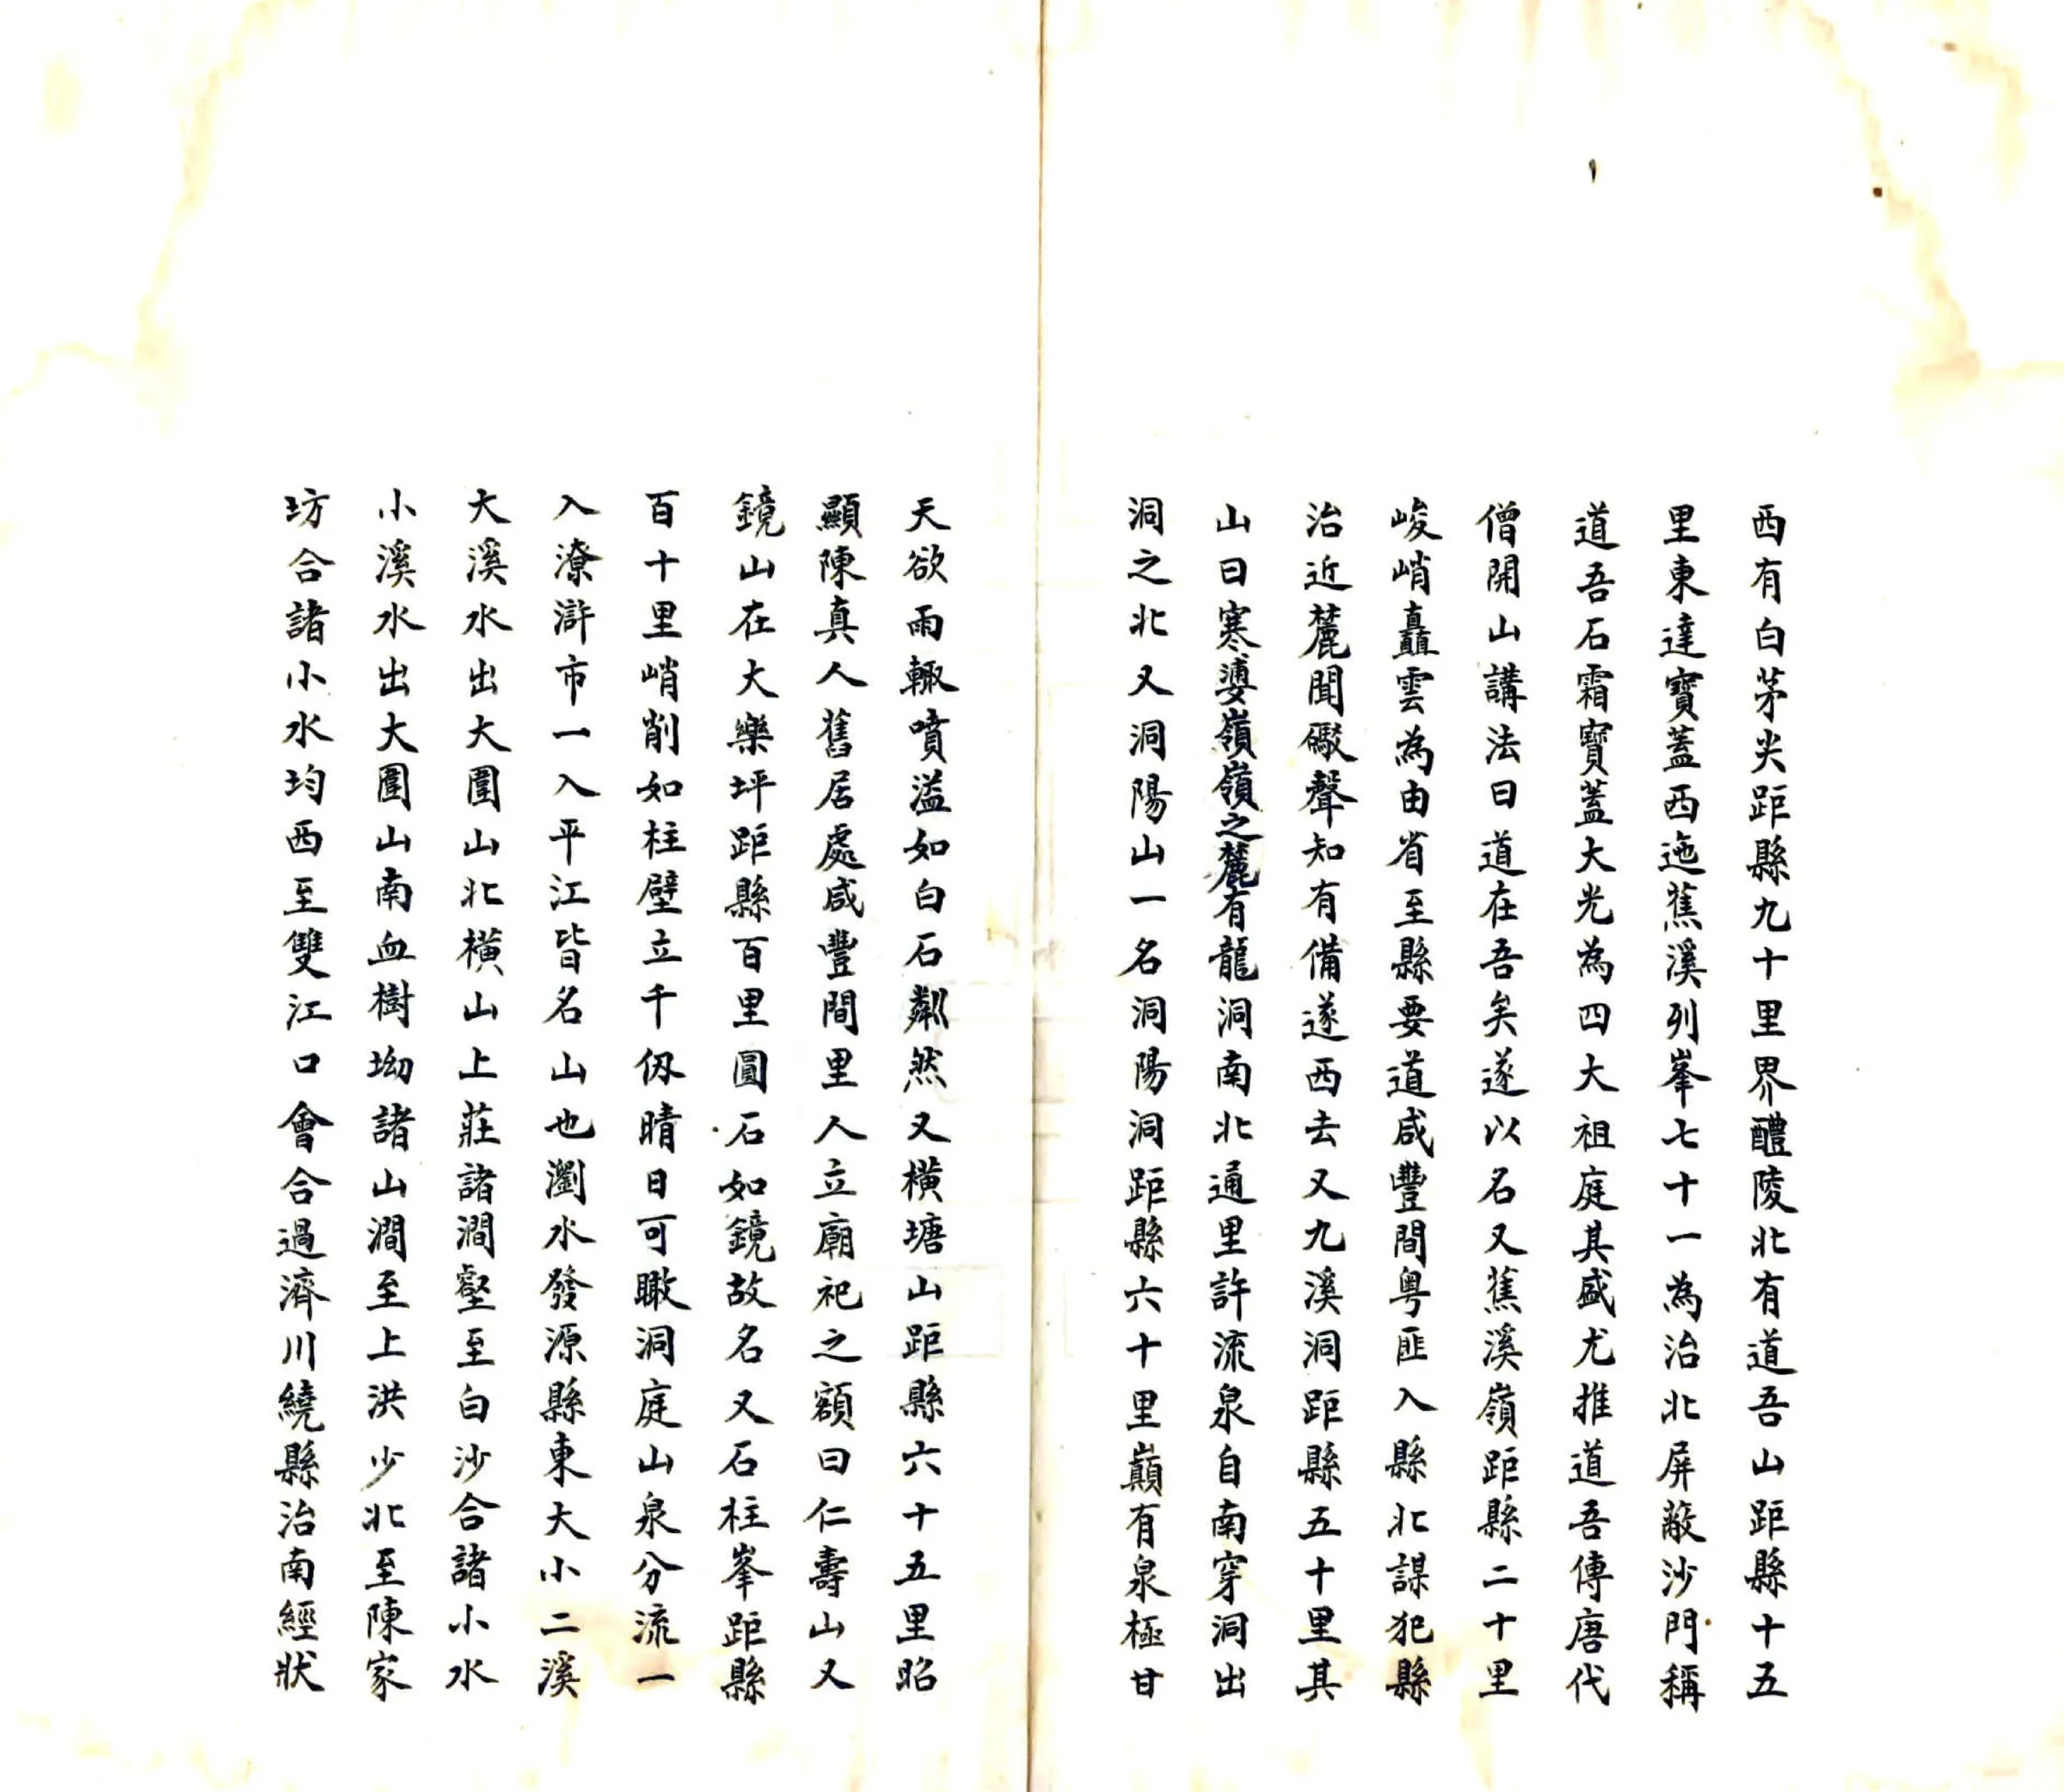 西有白茅尖距縣九十里界醴陵北有道吾山距縣十五
里東達寶蓋西迤蕉溪列峯七十一為治北屏蔽沙門稱
道吾石霜寶蓋大光為四大祖庭其盛尤推道吾傳唐代
僧開山講法曰道在吾矣遂以名又蕉溪嶺距縣二十里
峻峭矗雲為由省至縣要道咸豐間粵匪入縣北謀犯縣
治近麓聞礮聲知有備遂西去又九溪洞距縣五十里其
山曰寒婆嶺嶺之麓有龍洞南北通里許流泉自南穿洞出
洞之北又洞陽山一名洞陽洞距縣六十里巔有泉極甘
天欲雨輙噴溢如白石粼然又橫塘山距縣六十五里昭
顯陳真人舊居處咸豐間里人立廟祀之額曰仁壽山又
鏡山在大樂坪距縣百里圓石如鏡故名又石柱峯距縣
百十里峭削如柱壁立千仭晴日可瞰洞庭山泉分流一
入潦滸市一入平江皆名山也瀏水發源縣東大小二溪
大溪水出大圍山北橫山上莊諸澗壑至白沙合諸小水
小溪水出大圍山南血樹坳諸山澗至上洪少北至陳家
坊合諸小水均西至雙江口會合過濟川繞縣治南經狀